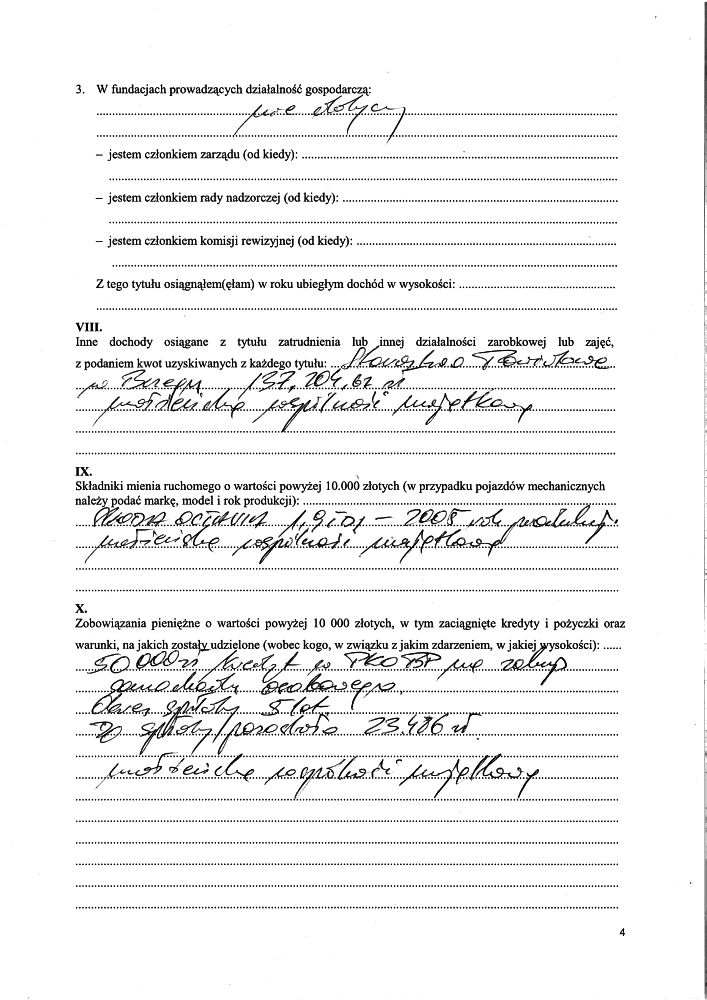 3. W fundacjach prowadzących działalność gospodarczą:
nie dotyczy
– jestem członkiem zarządu (od kiedy):
– jestem członkiem rady nadzorczej (od kiedy):
– jestem członkiem komisji rewizyjnej (od kiedy):
Z tego tytułu osiągnąłem(ęłam) w roku ubiegłym dochód w wysokości:
VIII.
Inne dochody osiągane z tytułu zatrudnienia lub innej działalności zarobkowej lub zajęć,
z podaniem kwot uzyskiwanych z każdego tytułu: Starostwo Powiatowe
w Brzegu 137.204,62 zł
małżeńska wspólność majątkowa
IX.
Składniki mienia ruchomego o wartości powyżej 10.000 złotych (w przypadku pojazdów mechanicznych
należy podać markę, model i rok produkcji):
SKODA OCTAVIA 1,9 TDI – 2008 rok produkcji
małżeńska wspólność majątkowa
X.
Zobowiązania pieniężne o wartości powyżej 10 000 złotych, w tym zaciągnięte kredyty i pożyczki oraz
warunki, na jakich zostały udzielone (wobec kogo, w związku z jakim zdarzeniem, w jakiej wysokości):
50 000 zł kredyt w PKO BP na zakup
samochodu osobowego.
Okres spłaty 5 lat.
Do spłaty pozostało 23.486 zł.
małżeńska wspólność majątkowa
4